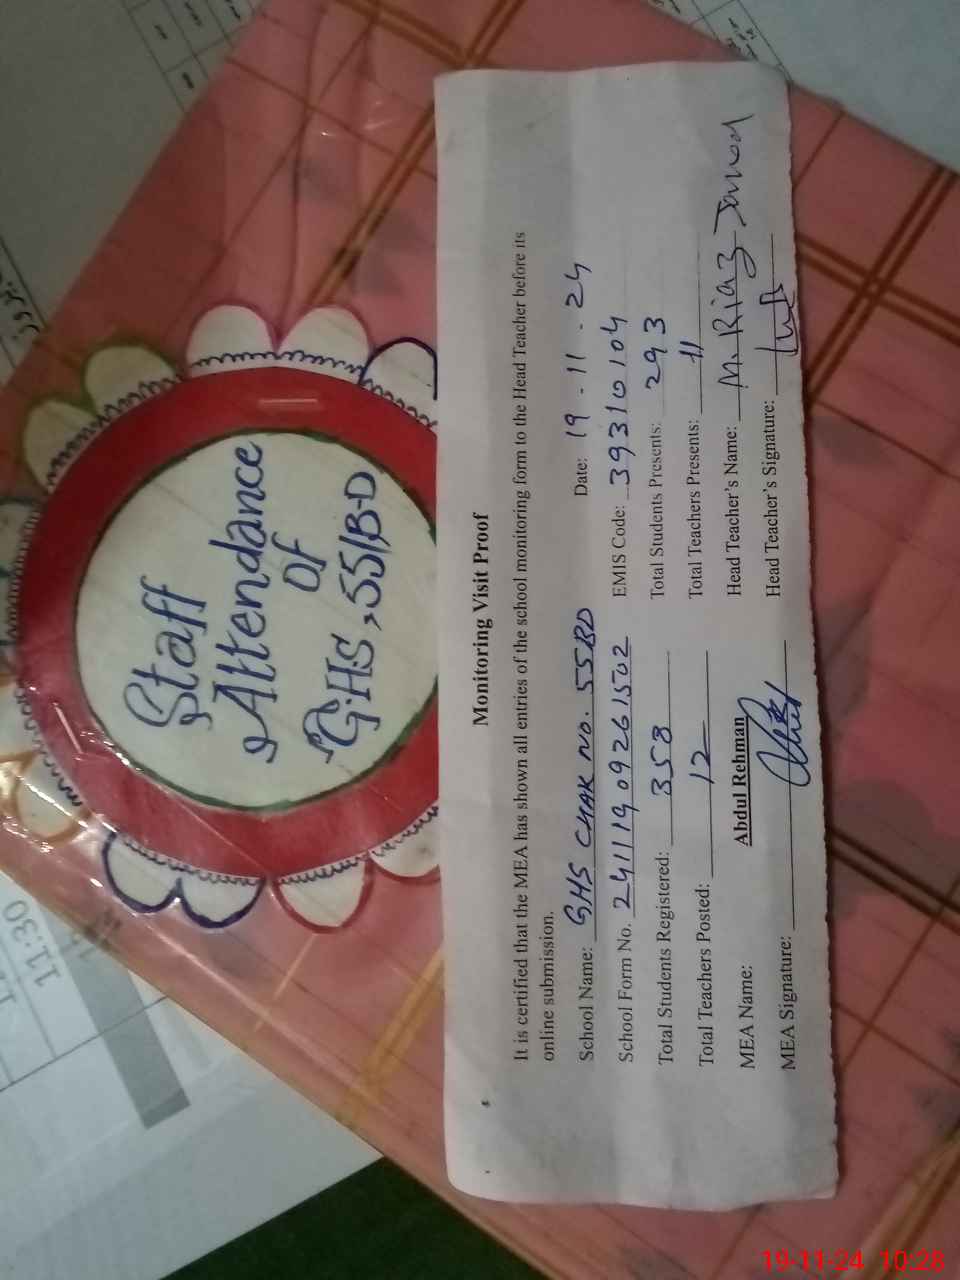 Staff
Attendance
of
GHS, 55/B-D
Monitoring Visit Proof
It is certified that the MEA has shown all entries of the school monitoring form to the Head Teacher before its
online submission.
School Name: GHS CHAK NO. 55BD Date: 19-11-24
School Form No. 241119 0926 1502 EMIS Code: 39310104
Total Students Registered: 358 Total Students Presents: 293
Total Teachers Posted: 12 Total Teachers Presents: 11
MEA Name: Abdul Rehman Head Teacher's Name: M. Riaz
MEA Signature: Head Teacher's Signature:
11:30
19-11-24 10:28